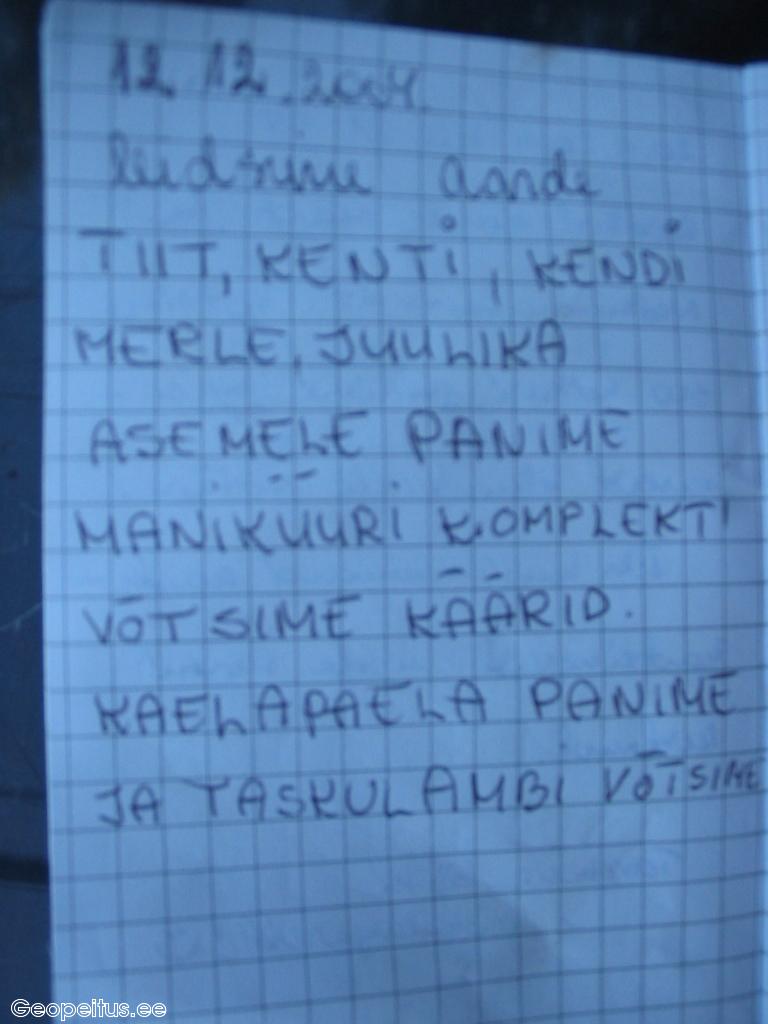 12.12.2004.
leidsime aarde
TIIT, KENTI, KENDI
MERLE, JUULIKA
ASEMELE PANIME
MANIKÜÜRI KOMPLEKTI
VÕTSIME KÄÄRID.
KAELAPAELA PANIME
JA TASKULAMBI VÕTSIME
Geopeitus.ee